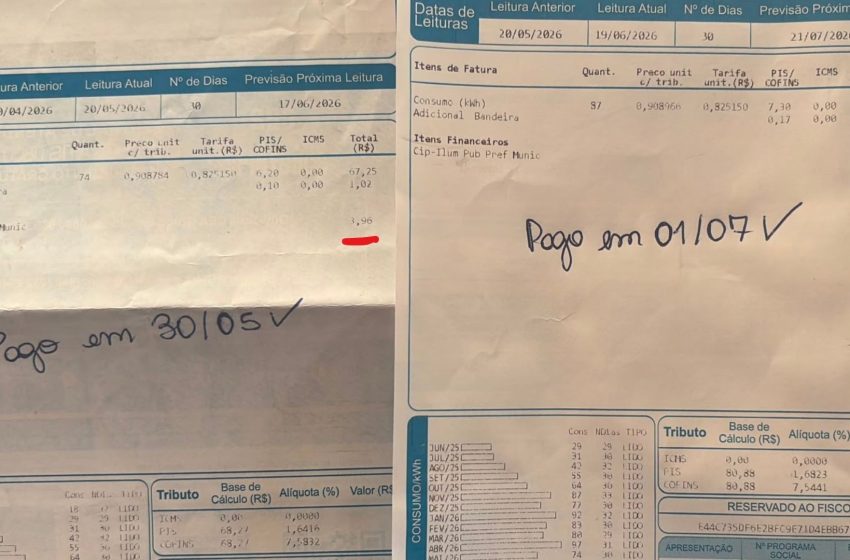 ura Anterior Leitura Atual Nº de Dias Previsão Próxima Leitura
/04/2026 20/05/2026 30 17/06/2026
Quant. Preco unit c/ trib. Tarifa unit.(R$) PIS/ COFINS ICMS Total (R$)
74 0,908784 0,825150 6,20 0,00 67,25
ra 0,10 0,00 1,02
Munic 3,96
Pago em 30/05 ✓
Cons NDias TIPO
18 LIDO
29 29 LIDO
31 30 LIDO
42 32 LIDO
55 30 LIDO
64 30 LIDO
Tributo Base de Cálculo (R$) Alíquota (%) Valor (R$
ICMS 0,00 0,0000
PIS 68,27 1,6416
COFINS 68,27 7,5832
Datas de Leituras
Leitura Anterior Leitura Atual Nº de Dias Previsão Próxim
20/05/2026 19/06/2026 30 21/07/202
Itens de Fatura Quant. Preco unit c/ trib. Tarifa unit.(R$) PIS/ COFINS ICMS
Consumo (kWh) 87 0,908966 0,825150 7,30 0,00
Adicional Bandeira 0,17 0,00
Itens Financeiros
Cip-Ilum Pub Pref Munic
Pago em 01/07 ✓
CONSUMO/kWh
Cons NDias TIPO
JUN/25 29 29 LIDO
JUL/25 31 30 LIDO
AGO/25 42 32 LIDO
SET/25 55 30 LIDO
OUT/25 64 30 LIDO
NOV/25 87 33 LIDO
DEZ/25 77 30 LIDO
JAN/26 92 32 LIDO
FEV/26 83 30 LIDO
MAR/26 80 29 LIDO
ABR/26 97 31 LIDO
MAI/26 74 30 LIDO
Tributo Base de Cálculo (R$) Alíquota (%)
ICMS 0,00 0,0000
PIS 80,88 1,6823
COFINS 80,88 7,5441
RESERVADO AO FISCO
E44C735DF6E2BFC9E71D4EBB67
APRESENTAÇÃO Nº PROGRAMA SOCIAL